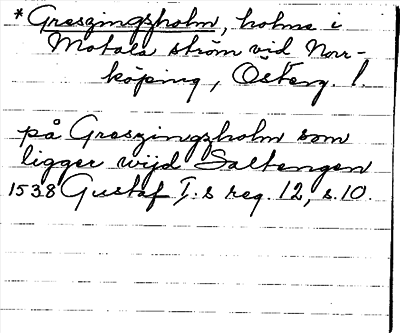 *Greszingzholm, holme i
Motala ström vid Norr-
köping, Österg. l.
på Greszingzholm som
ligger wijd Saltengen
1538 Gustaf I:s reg. 12, s. 10.